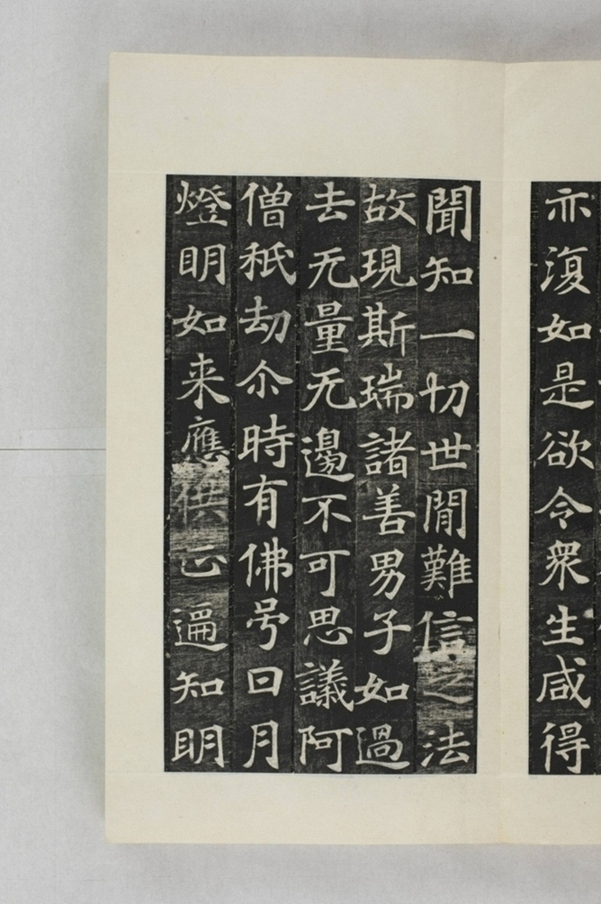 亦復如是欲令衆生咸得
聞知一切世閒難信之法
故現斯瑞諸善男子如過
去无量无邊不可思議阿
僧秖劫尒時有佛号曰月
燈明如来應供正遍知明